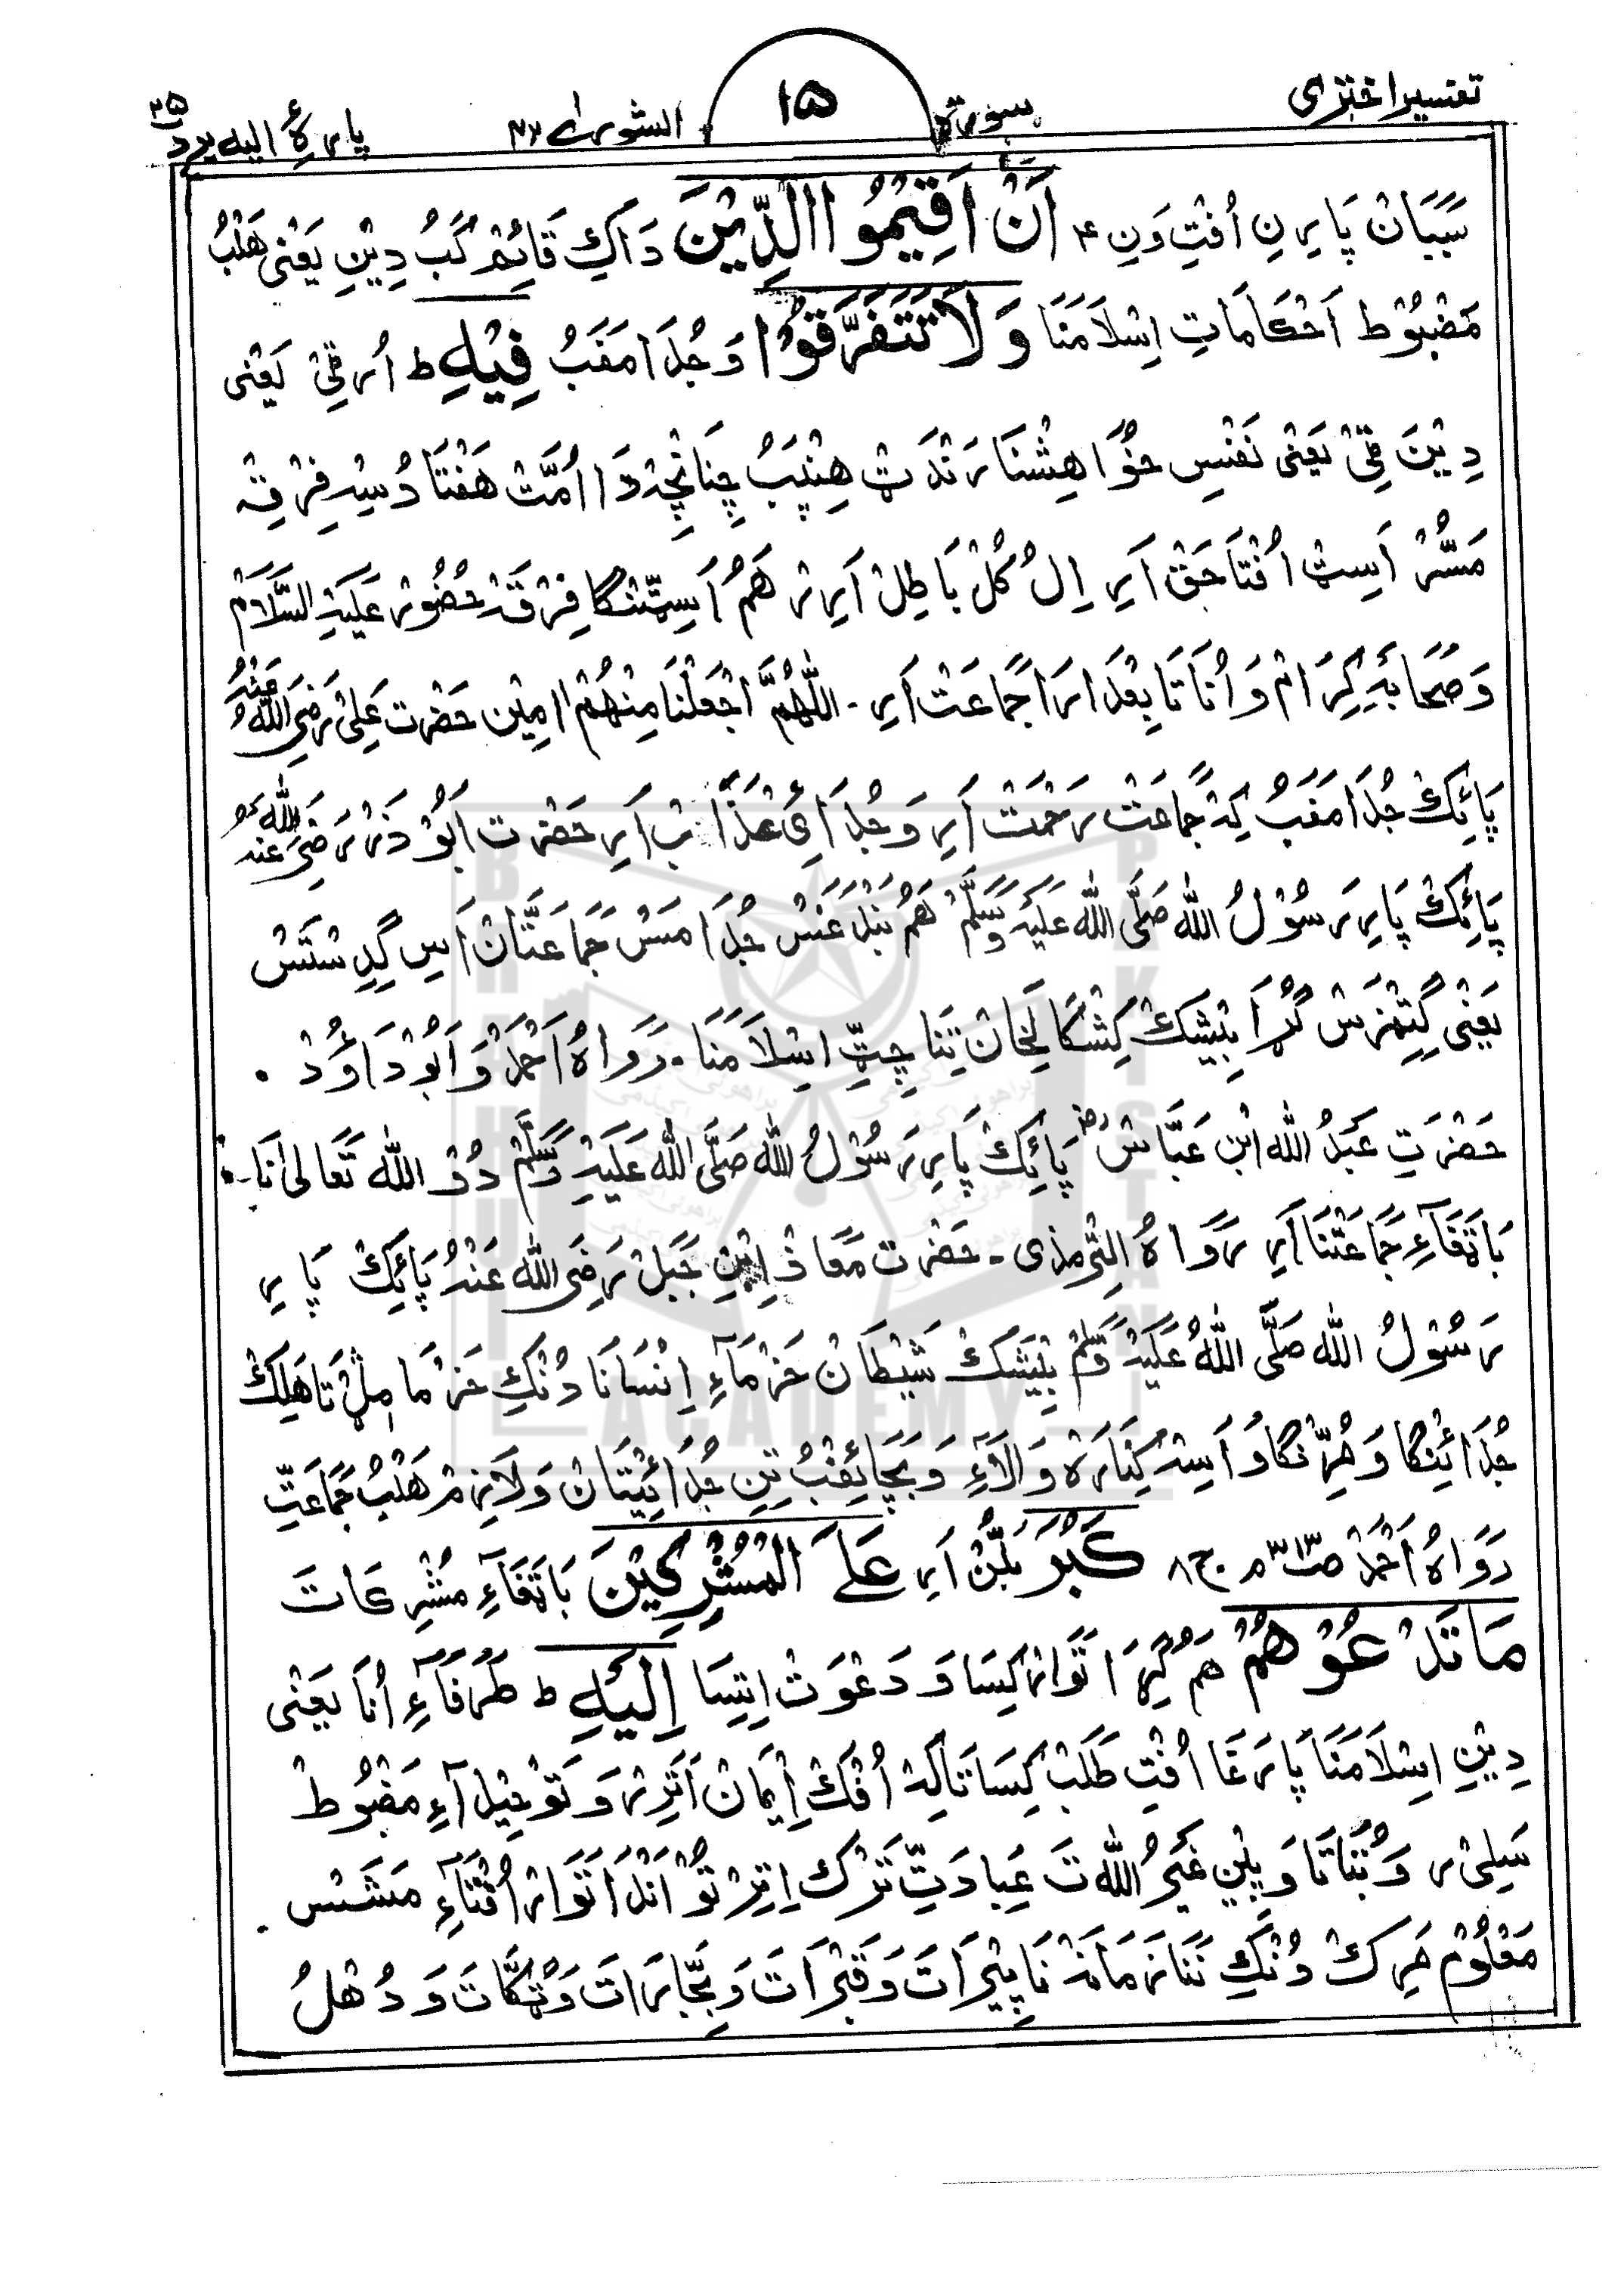 تفسیر اختری
سورة
۱۵
الشورٰی ۴۲
پارۂ الیه یرد ۲۵
سَبَبَان پَارِنِ اُفتِ وَنِ ۴ اَنْ اَقِیْمُوا الدِّیْنَ دَاکِ قَائِمْ کَبُ دِیْنِ یَعْنی هَلْبُ
مَضْبُوْط اَحْکَامَاتِ اِسْلَامَنَا وَلَا تَتَفَرَّقُوْا وَ جُدَا مَفَبُ فِیْهِ ط اُرقِیْ یَعْنی
دِیْنَ قِیْ یَعْنی نَفْسِ خوَاهِشْنَا رَنْدَٹ هِنْپَبُ چِنَانْچِه دَا اُمَّتْ هَفْتَادُ سِه فِرْقِه
مَسُّرْ اَسِٹ اُفْتَا حَقْ اَرِ اِلُ کُلْ بَاطِلْ اَرِرْ هَمُ اَسِٹَنْگا فِرْقَه حُضُورْ عَلَیْهِ السَّلَامْ
وَ صَحَابَهِ کِرَامْ وَ اُنَا تَابِعْدَارَا جَمَاعَتْ اَرِ ۔ اَللّٰهُمَّ اجْعَلْنَا مِنْهُمْ اٰمِیْن حَضْرَت عَلِیْ رَضِیَ اللّٰهُ عَنْهُ
پَائِکْ جُدَا مَفَبُ کِه جَمَاعَتْ رَحْمَتْ اَرِ وَ جُدَائی عَذَابْ اَرِ حَضْرَت اَبُوْ ذَرْ رَضِیَ اللّٰهُ عَنْهُ
پَائِکْ پَارِ رَسُوْلُ اللّٰه صَلَّی اللّٰه عَلَیْهِ وَسَلَّمْ هَمُ بَنْدَغَسْ جُدَا مَسْ جَمَاعَتَّانْ اَسِ گِدِ سْتَسْ
یَعْنی گِتْهَرَسْ گُڑَا بِیْشَکْ کِشْکَا لِخَانْ تِنَا چِٹِّ اِسْلَامَنَا ۔ رَوَاهُ اَحْمَدْ وَ اَبُوْ دَاوٗدْ ۔
حَضْرَتِ عَبْدُ اللّٰه ابْنِ عَبَّاسْ رض پَائِکْ پَارِ رَسُوْلُ اللّٰه صَلَّی اللّٰه عَلَیْهِ وَسَلَّمْ دُوْ اللّٰه تَعَالٰی نَا
بَاتَغَاءِ جَمَاعَتْنَا اَرِ رَوَاهُ التِّرمذی ۔ حَضْرَت مَعَاذ اِبْنِ جَبَلْ رَضِیَ اللّٰه عَنْهُ پَائِکْ پَارِ
رَسُوْلُ اللّٰه صَلَّی اللّٰهُ عَلَیْهِ وَسَلَّمْ بِیْشَکْ شَیْطَانْ خَرْمَاءِ اِنْسَانَا دُنْکِ خَرْمَا مِلْ تَا هَلِکْ
جُدَائِنْگا وَ مُرِّنْگا وَ اَسِه کِنَارَهْ وَالَاءِ وَ بَچَائِفْبُ تِنِ جُدَائِیْتَانْ وَ لَازِمْ هَلْبُ جَمَاعَتِّ
رَوَاهُ اَحْمَدْ کَبُرَ بَلُنْ اَرِ عَلَی الْمُشْرِکِیْنَ بَاتَغَاءِ مُشْرِکَاتَ
مَا تَدْعُوْهُمْ هَمُ گِڑَا تَوَارْ کِسَا وَ دَعْوَتْ اِتِسَا اِلَیْهِ ط طَرْفَاءِ اُنَا یَعْنی
دِیْنِ اِسْلَامَنَا پَارَغَا اُفْتِ طَلَبْ کِسَا تَاکِه اُفْکْ اِیْمَانْ اَتِرْ وَ تَوْحِیْدَاءِ مَضْبُوطْ
سَلِیْر وَ بُتَاتَا وَ پِنِ غَیْرُ اللّٰه تَ عِبَادَتِّ تَرْک اِتِرْ تَوْ اَنْدَا تَوَارْ اُفْتَاءِ مَشَسْ ۔
مَعْلُوْم مَرِکْ دُنْکِ نَنَا زَمَانَه نَا پِیْرَاتَ وَ قَبْرَاتَ وَ جَّابَرَاتَ وَ ٹُهکَّاتَ وَ دُهْلُ